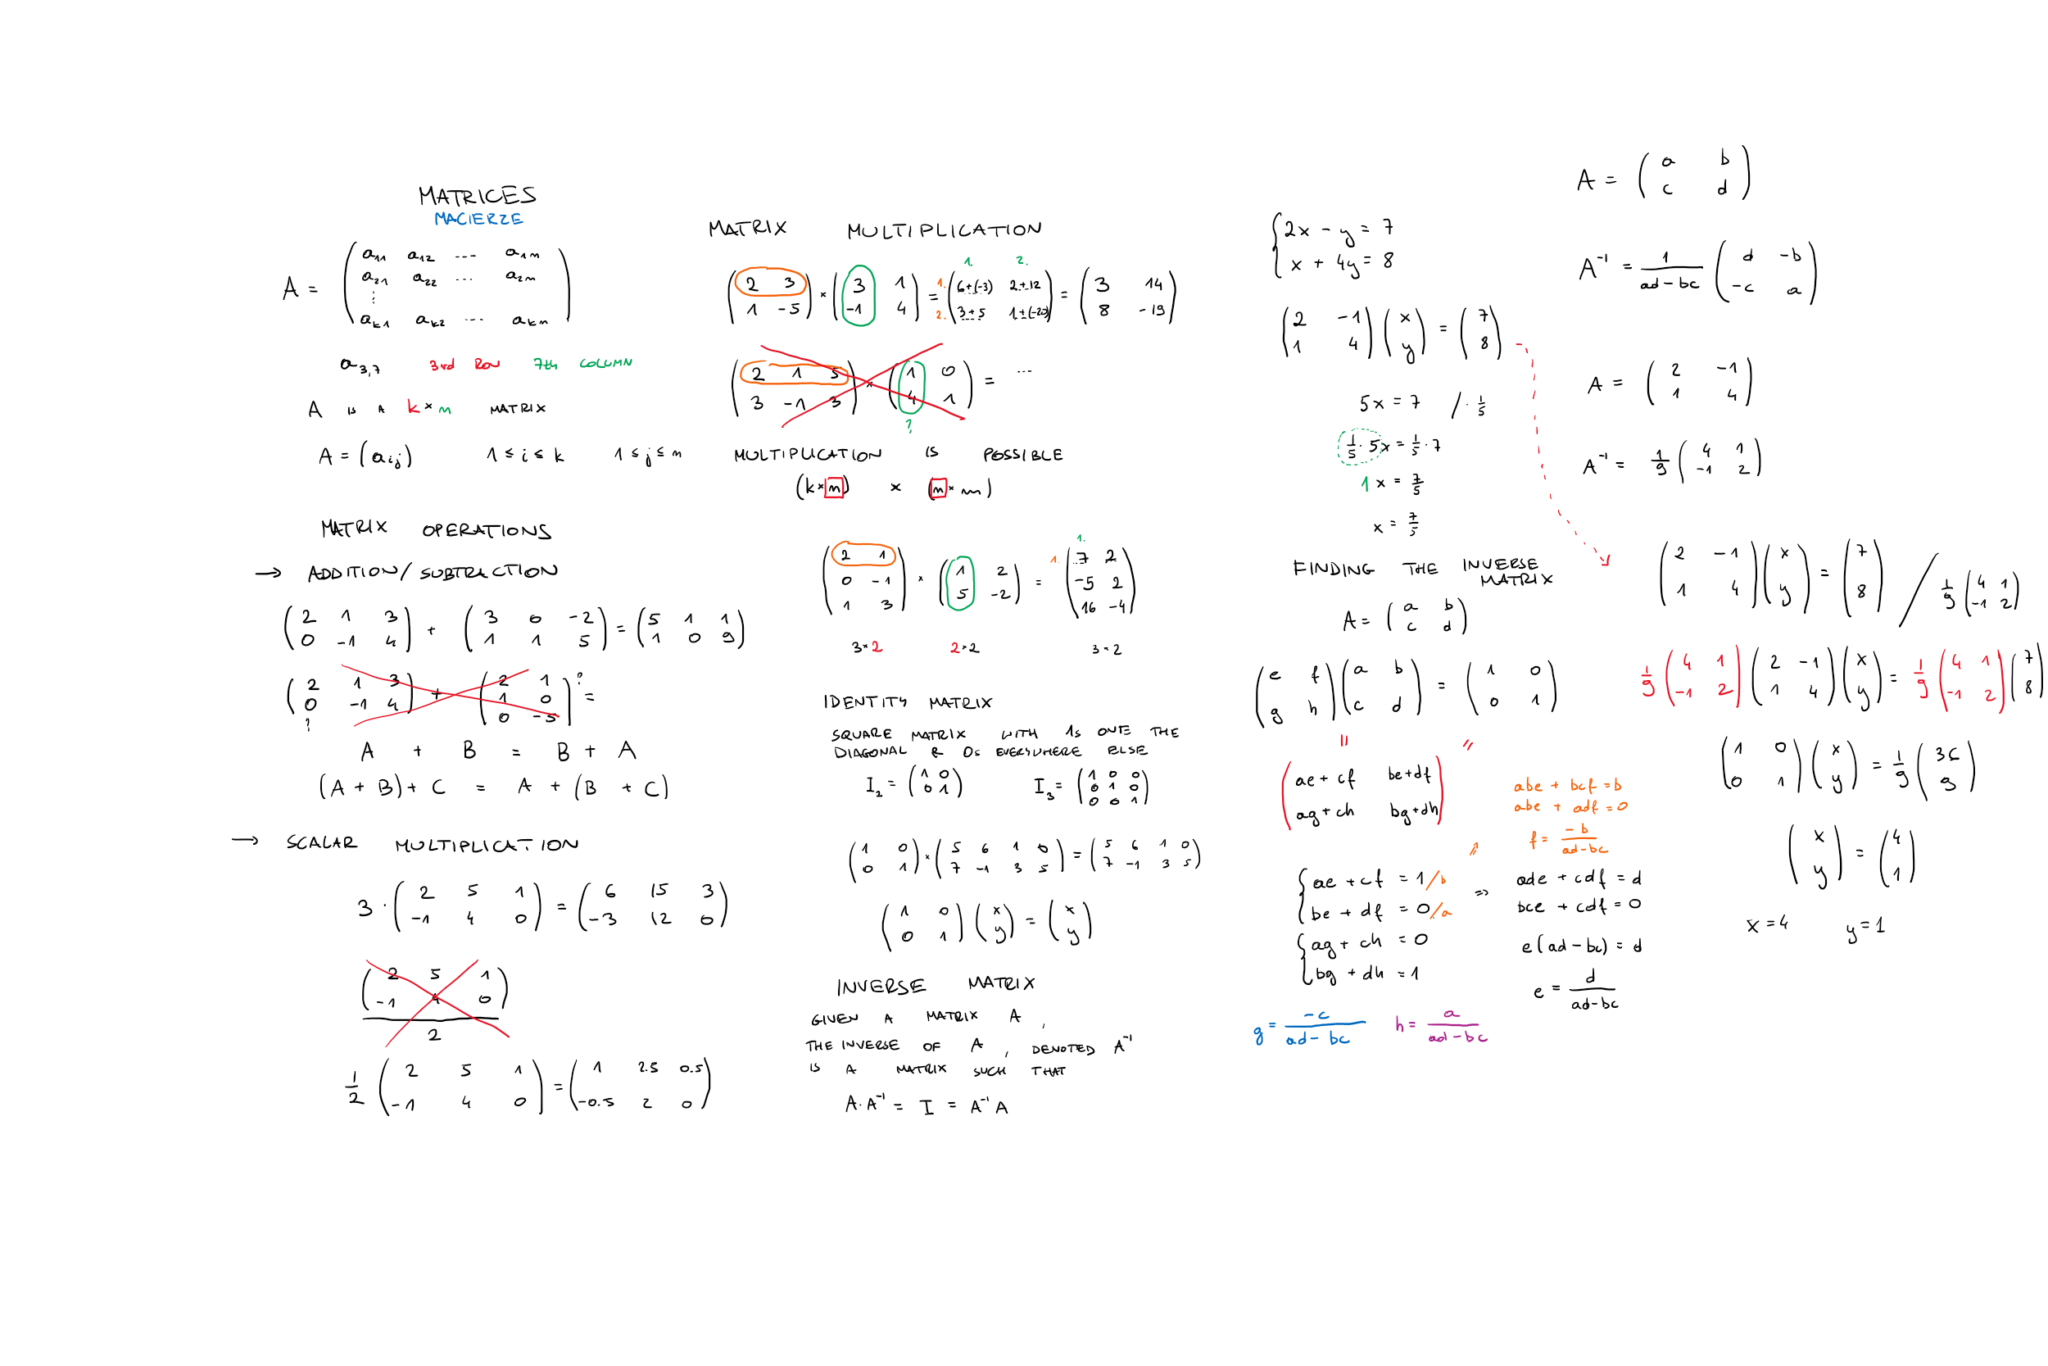 MATRICES
MACIERZE
A = ( a11 a12 --- a1n
a21 a22 ... a2n
⋮
ak1 ak2 ... akn )
a3,7 3rd ROW 7th COLUMN
A IS A k × n MATRIX
A = (aij) 1 ≤ i ≤ k 1 ≤ j ≤ n
MATRIX OPERATIONS
→ ADDITION/SUBTRACTION
( 2 1 3 ) + ( 3 0 -2 ) = ( 5 1 1 )
( 0 -1 4 ) ( 1 1 5 ) ( 1 0 9 )
( 2 1 3 ) + ( 2 1 ) ? =
( 0 -1 4 ) ( 1 0 )
? ( 0 -5 )
A + B = B + A
(A + B) + C = A + (B + C)
→ SCALAR MULTIPLICATION
3 · ( 2 5 1 ) = ( 6 15 3 )
( -1 4 0 ) ( -3 12 0 )
( 2 5 1 )
( -1 4 0 )
2
1/2 ( 2 5 1 ) = ( 1 2.5 0.5 )
( -1 4 0 ) ( -0.5 2 0 )
MATRIX MULTIPLICATION
1. 2.
( 2 3 ) × ( 3 1 ) = 1. ( 6+(-3) 2+12 ) = ( 3 14 )
( 1 -5 ) ( -1 4 ) 2. ( 3+5 1+(-20) ) ( 8 -19 )
( 2 1 5 ) × ( 1 0 ) = ...
( 3 -1 3 ) ( 4 1 )
?
MULTIPLICATION IS POSSIBLE
(k × n) × (n × m)
1.
( 2 1 ) × ( 1 2 ) = 1. ( 7 2 )
( 0 -1 ) ( 5 -2 ) ( -5 2 )
( 1 3 ) ( 16 -4 )
3×2 2×2 3×2
IDENTITY MATRIX
SQUARE MATRIX WITH 1s ONE THE
DIAGONAL & 0s EVERYWHERE ELSE
I2 = ( 1 0 ) I3 = ( 1 0 0 )
( 0 1 ) ( 0 1 0 )
( 0 0 1 )
( 1 0 ) × ( 5 6 1 0 ) = ( 5 6 1 0 )
( 0 1 ) ( 7 -1 3 5 ) ( 7 -1 3 5 )
( 1 0 ) ( x ) = ( x )
( 0 1 ) ( y ) ( y )
INVERSE MATRIX
GIVEN A MATRIX A,
THE INVERSE OF A, DENOTED A⁻¹
IS A MATRIX SUCH THAT
A·A⁻¹ = I = A⁻¹A
{ 2x - y = 7
x + 4y = 8
( 2 -1 ) ( x ) = ( 7 )
( 1 4 ) ( y ) ( 8 )
5x = 7 / · 1/5
1/5 · 5x = 1/5 · 7
1x = 7/5
x = 7/5
FINDING THE INVERSE
MATRIX
A = ( a b )
( c d )
( e f ) ( a b ) = ( 1 0 )
( g h ) ( c d ) ( 0 1 )
= =
( ae + cf be + df )
( ag + ch bg + dh )
{ ae + cf = 1 /b
be + df = 0 /a
{ ag + ch = 0
bg + dh = 1
g = -c/ad - bc h = a/ad - bc
abe + bcf = b
abe + adf = 0
f = -b/ad-bc
⇒ ade + cdf = d
bce + cdf = 0
e(ad - bc) = d
e = d/ad-bc
A = ( a b )
( c d )
A⁻¹ = 1/ad-bc ( d -b )
( -c a )
A = ( 2 -1 )
( 1 4 )
A⁻¹ = 1/9 ( 4 1 )
( -1 2 )
( 2 -1 ) ( x ) = ( 7 ) / 1/9 ( 4 1 )
( 1 4 ) ( y ) ( 8 ) ( -1 2 )
1/9 ( 4 1 ) ( 2 -1 ) ( x ) = 1/9 ( 4 1 ) ( 7 )
( -1 2 ) ( 1 4 ) ( y ) ( -1 2 ) ( 8 )
( 1 0 ) ( x ) = 1/9 ( 36 )
( 0 1 ) ( y ) ( 9 )
( x ) = ( 4 )
( y ) ( 1 )
x = 4 y = 1